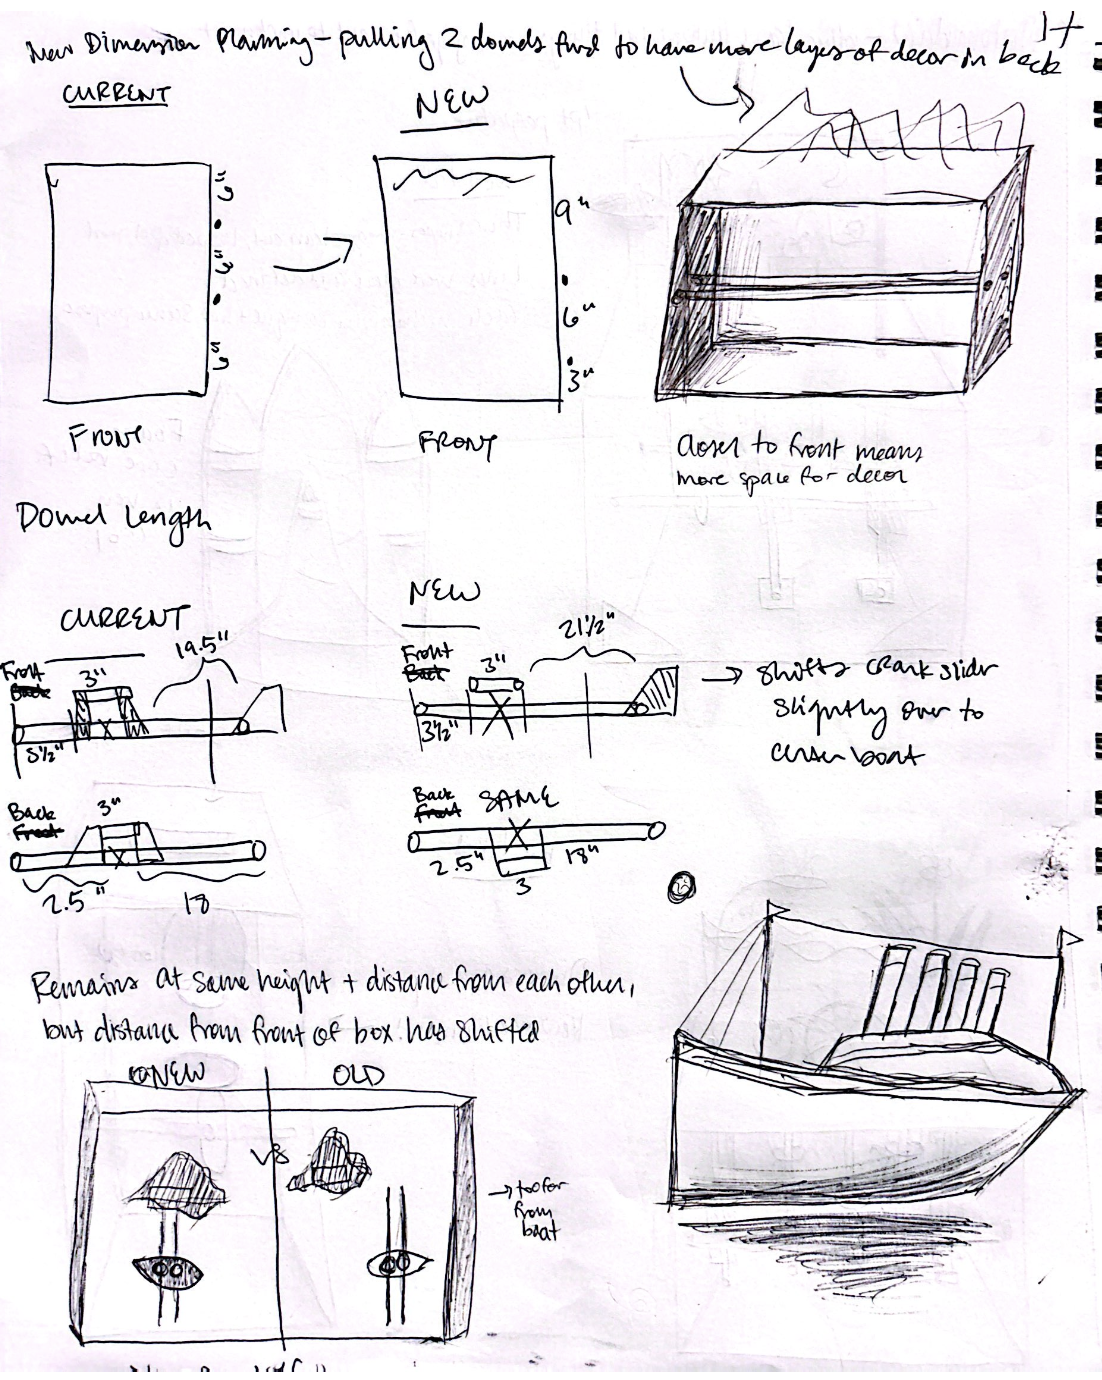 New Dimension Planning - pulling 2 dowels fwd to have more layers of decor in back
CURRENT
NEW
9"
6"
3"
FRONT
FRONT
Closer to front means
more space for decor
Dowel Length
CURRENT
NEW
Front
Back
3"
19.5"
5½"
Front
Back
3"
21½"
3½"
→ shifts crank slider
slightly over to
center boat
Back
Front
3"
2.5"
18
Back
Front
SAME
2.5"
3
18"
Remains at same height + distance from each other,
but distance from front of box has shifted
NEW
OLD
VS
→ too far
from
boat